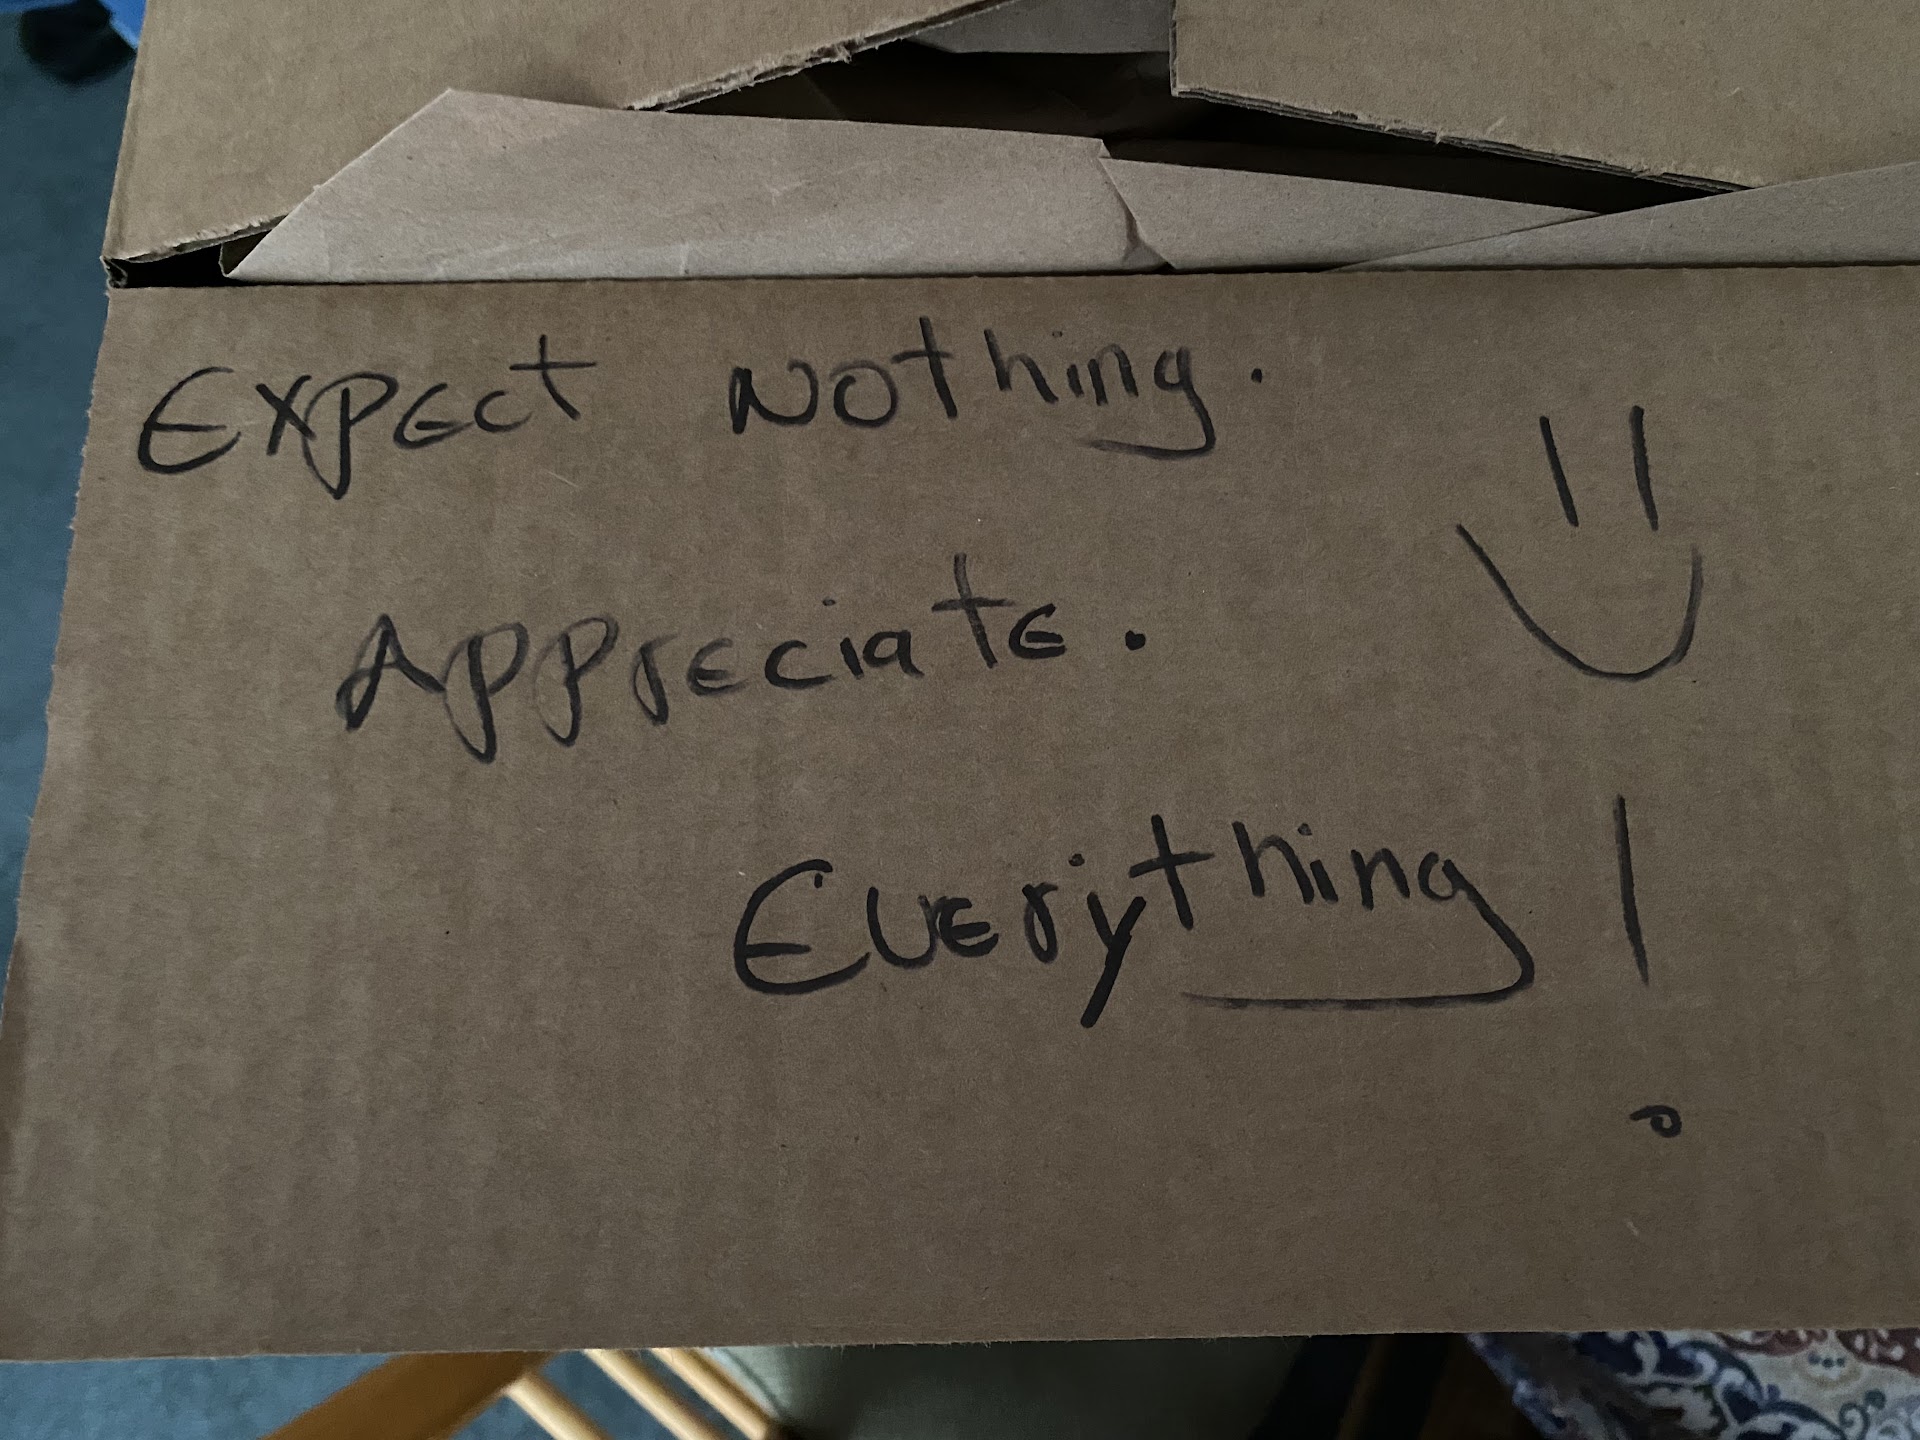 Expect Nothing.
Appreciate.
Everything!